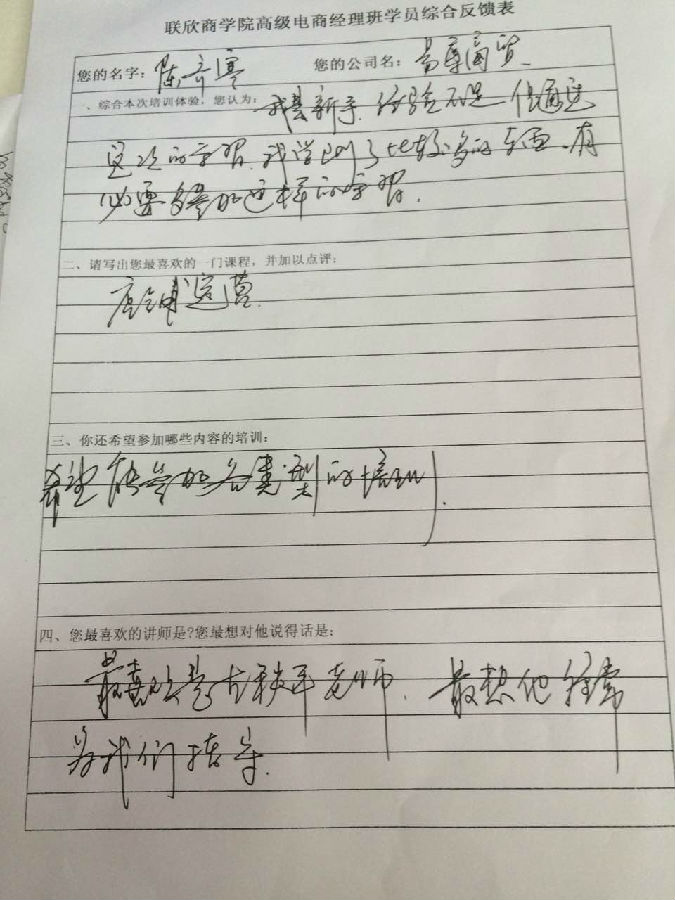 联欣商学院高级电商经理班学员综合反馈表
您的名字：陈齐寒 您的公司名：易库商贸
、综合本次培训体验，您认为：我是新手，经验不足，但通过
这次的学习，我学到了比较多的东西，有
必要多参加这样的学习．
二、请写出您最喜欢的一门课程，并加以点评：
店铺运营．
三、你还希望参加哪些内容的培训：
希望能参加各类型的培训．
四、您最喜欢的讲师是?您最想对他说得话是：
最喜欢是老师．最想他经常
为我们指导．